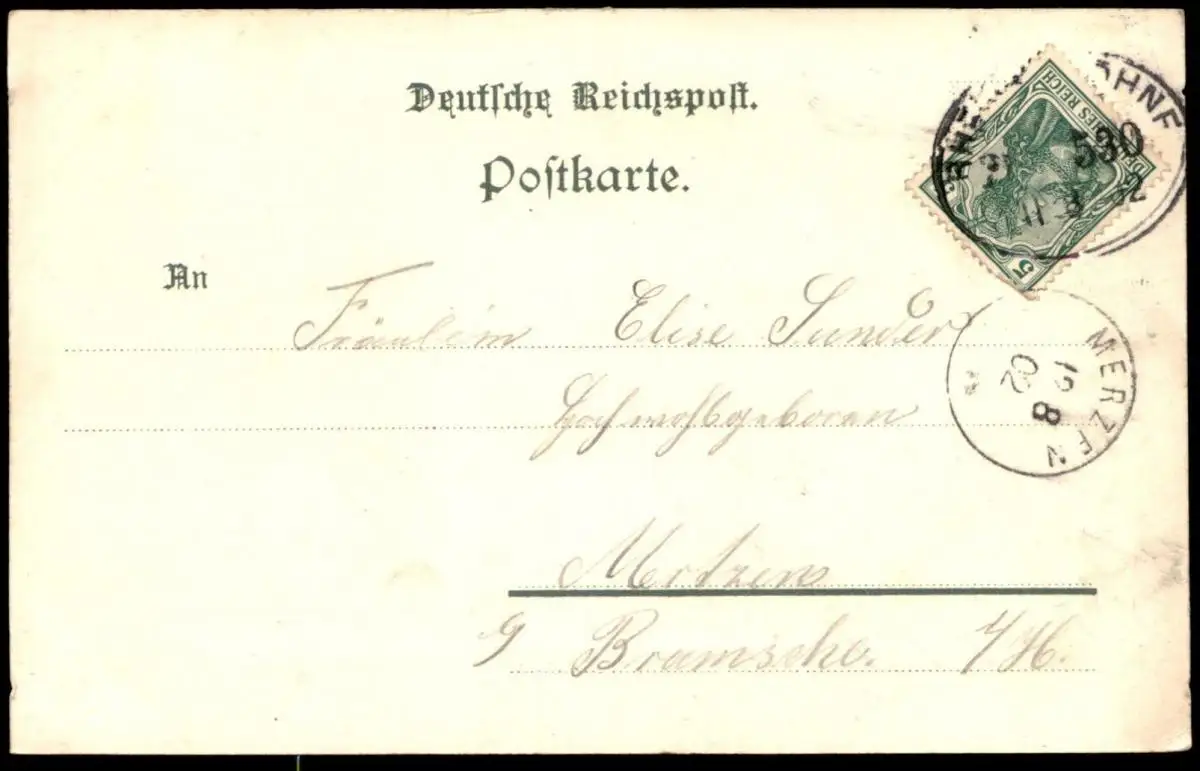 Deutsche Reichspost.
Postkarte.
An
Fräulein Elise Sunder
Hochwohlgeboren
Mertzen
Bramsche.
5
DEUTSCHES REICH
RHE ÖHNE
530
MERZEN
8
02